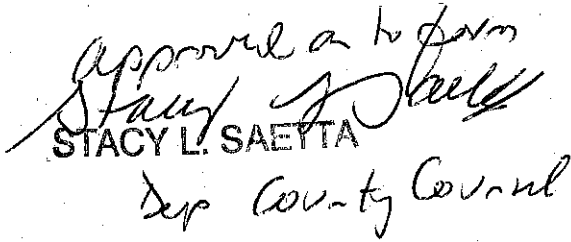 approved as to form
Stacy L. Saetta
STACY L. SAETTA
Dep County Counsel